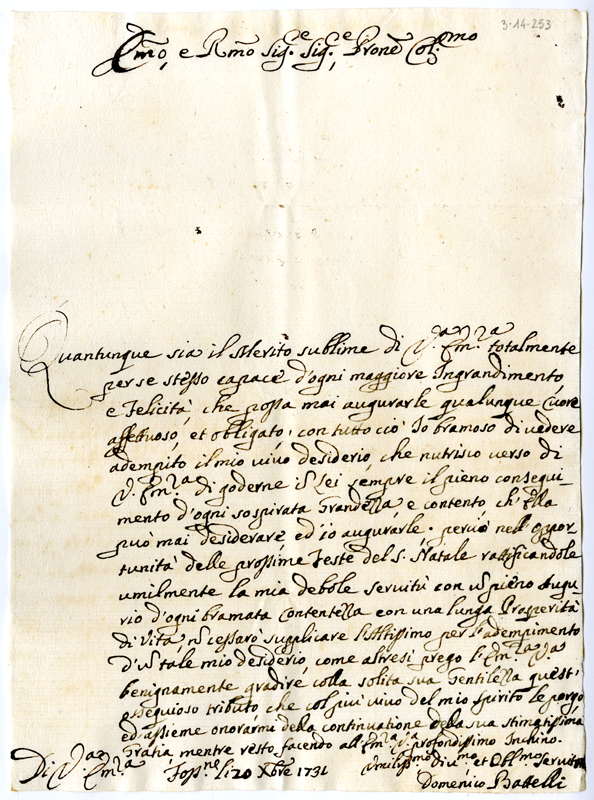 3-14-253
Emo, e Rmo Sig.e Sig.e Prone Col.mo
Quantunque sia il Merito sublime di V.a Em.za totalmente
per se stesso capace d'ogni maggiore Ingrandimento,
e Felicità, che possa mai augurarle qualunque Cuore
affettuoso, et obligato, con tutto ciò Io bramoso di vedere
adempito il mio vivo desiderio, che nutrisco verso di
V. Em.za di goderne in Lei sempre il pieno consegui-
mento d'ogni sospirata Grandezza e contento, ch'Ella
può mai desiderare ed io augurarle. perciò nell'oppor
tunità delle prossime Feste del S. Natale ratificandole
umilmente la mia debole servitù con un pieno Augu-
rio d'ogni bramata Contentezza con una lunga Prosperità
di Vita, non cessarò supplicare l'Altissimo per l'adempimento
d'un tale mio desiderio, come altresi prego l'Em.za V.a
benignamente gradire colla solita sua Gentilezza quest'
ossequioso tributo che col più vivo del mio spirito le porgo,
ed assieme onorarmi della continuatione della sua stimatissima
Gratia mentre resto facendo all'Em.za V.a profondissimo Inchino.
Di V.a Em.za Foss.ne li 20 Xbre 1731
Umiliss.mo Div.mo et Obl.mo Servitore
Domenico Battelli